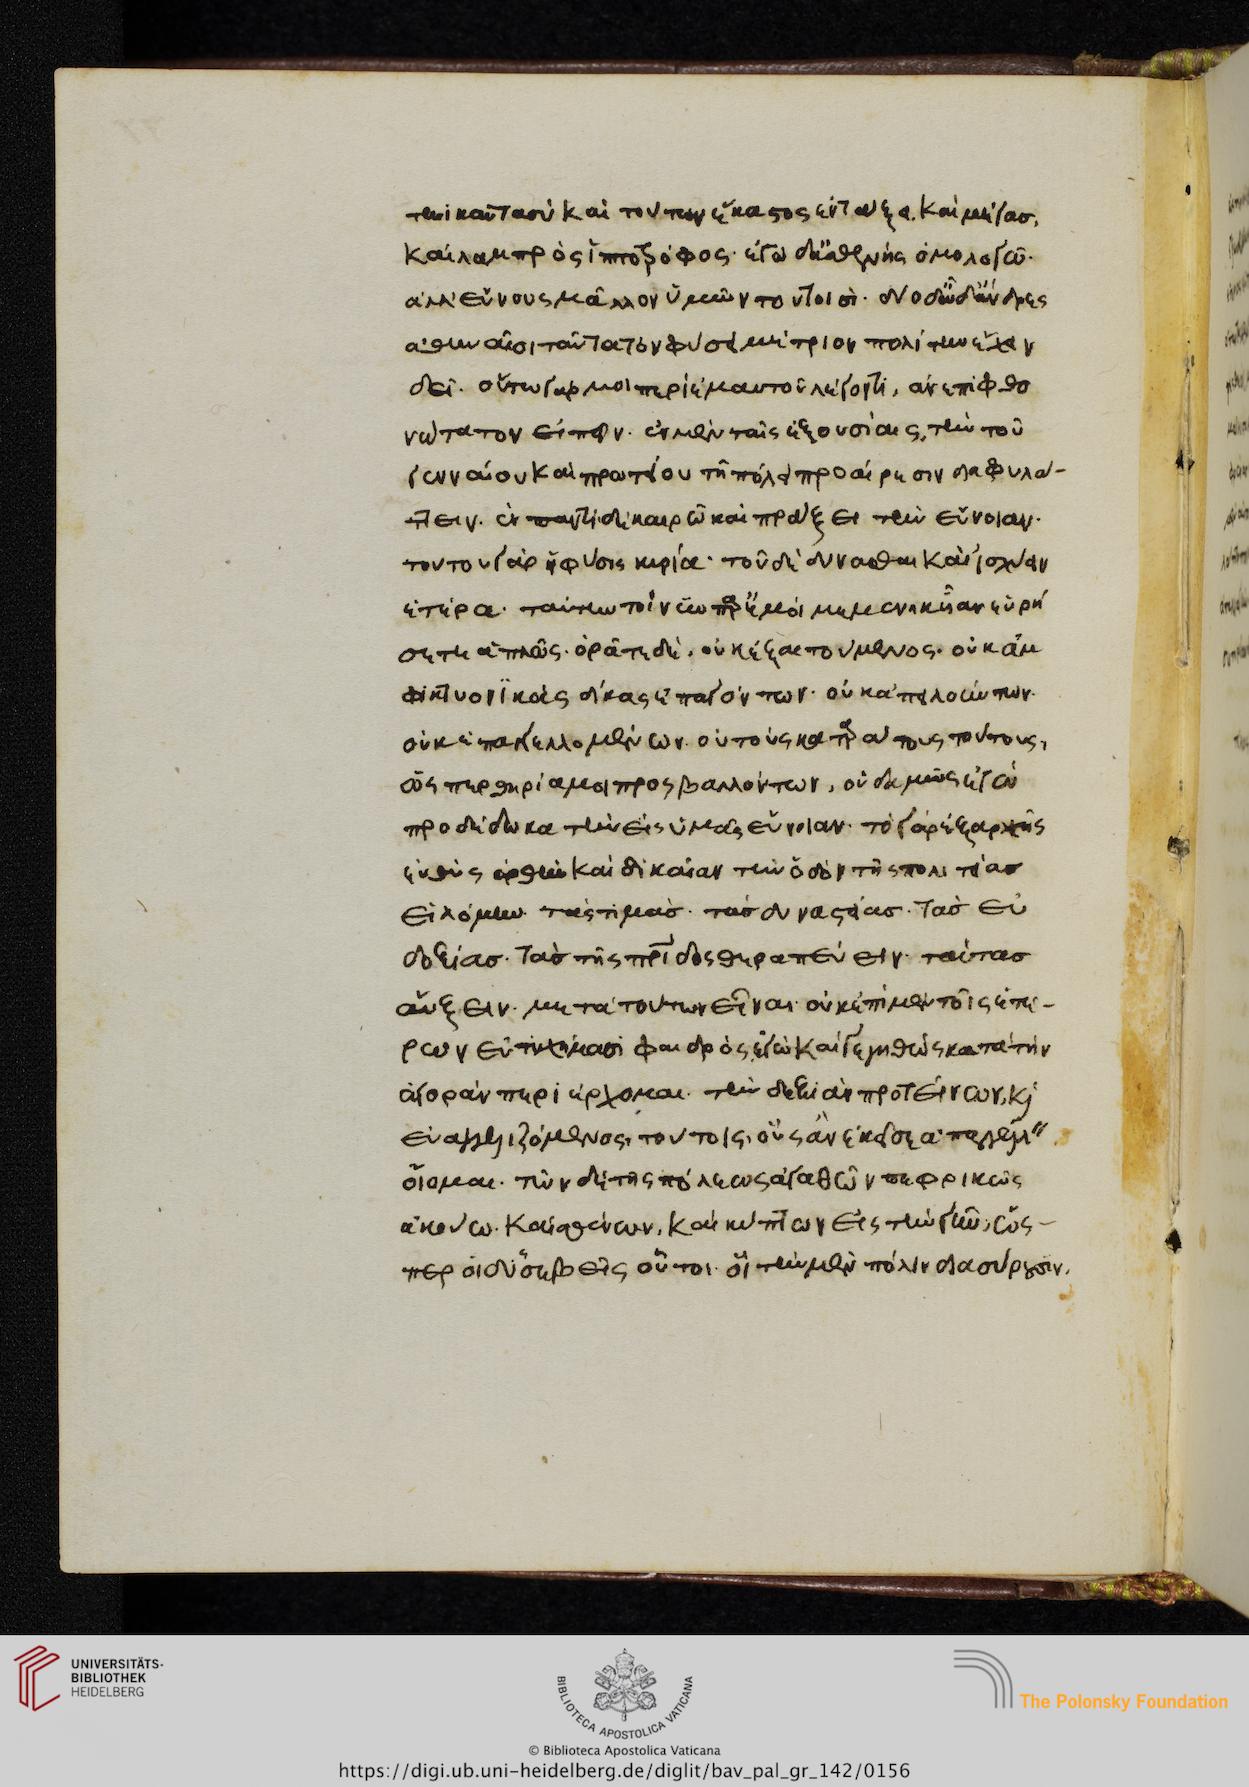 τηνικαῦτα σὺ καὶ τούτων ἕκαστος ἐν τάξει. καὶ μέγας,
καὶ λαμπρὸς ἱπποτρόφος. ἐγὼ δ' ἀσθενὴς ὁμολογῶ.
ἀλλ' εὔνους μᾶλλον ὑμῶν τουτοισί. δύο δ' ὦ ἄνδρες
ἀθηναῖσι ταῦτα τὸν φύσει μέτριον πολίτην ἔχειν
δεῖ. οὕτω γάρ μοι περὶ ἐμαυτοῦ λέγοντι, ἀνεπιφθο
νώτατον εἰπεῖν. ἐν μὲν ταῖς ἐξουσίαις, τὴν τοῦ
γενναίου καὶ πρωτείου τῇ πόλει προαίρεσιν διαφυλά-
ττειν. ἐν παντὶ δὲ καιρῷ καὶ πράξει τὴν εὔνοιαν.
τούτου γὰρ ἡ φύσις κυρία. τοῦ δὲ δύνασθαι καὶ ἰσχύειν
ἑτέρα. ταύτην τοίνυν παρ' ἐμοὶ μεμενηκυῖαν εὑρή
σετε ἁπλῶς. ὁρᾶτε δέ. οὐκ ἐξαιτούμενος. οὐκ ἀμ
φικτυονϊκὰς δίκας ἐπαγόντων. οὐκ ἀπειλούντων.
οὐκ ἐπαγγελλομένων. οὐ τοὺς καταράτους τούτους,
ὥσπερ θηρία μοι προσβαλλόντων, οὐδαμῶς ἐγὼ
προδέδωκα τὴν εἰς ὑμᾶς εὔνοιαν. τὸ γὰρ ἐξ ἀρχῆς
εὐθὺς ὀρθὴν καὶ δικαίαν τὴν ὁδὸν τῆς πολιτείας
εἱλόμην. τὰς τιμὰς. τὰς δυναστείας. τὰς εὐ
δοξίας. τὰς τῆς πατρίδος θεραπεύειν. ταύτας
αὔξειν. μετὰ τούτων εἶναι. οὐκ ἐπὶ μὲν τοῖς ἑτέ-
ρων εὐτυχήμασι φαιδρὸς ἐγὼ καὶ γεγηθὼς κατὰ τὴν
ἀγορὰν περιέρχομαι. τὴν δεξιὰν προτείνων, κὶ
εὐαγγελιζόμενος, τούτοις, οὓς ἂν ἐκεῖσε ἀπαγγελεῖν
οἴομαι. τῶν δὲ τῆς πόλεως ἀγαθῶν πεφρικὼς
ἀκούω. καὶ στένων, καὶ κύπτων εἰς τὴν γῆν, ὥσ-
περ οἱ δυσσεβεῖς οὗτοι. οἳ τὴν μὲν πόλιν διασύρουσιν,
UNIVERSITÄTS-
BIBLIOTHEK
HEIDELBERG
BIBLIOTECA APOSTOLICA VATICANA
© Biblioteca Apostolica Vaticana
The Polonsky Foundation
https://digi.ub.uni-heidelberg.de/diglit/bav_pal_gr_142/0156